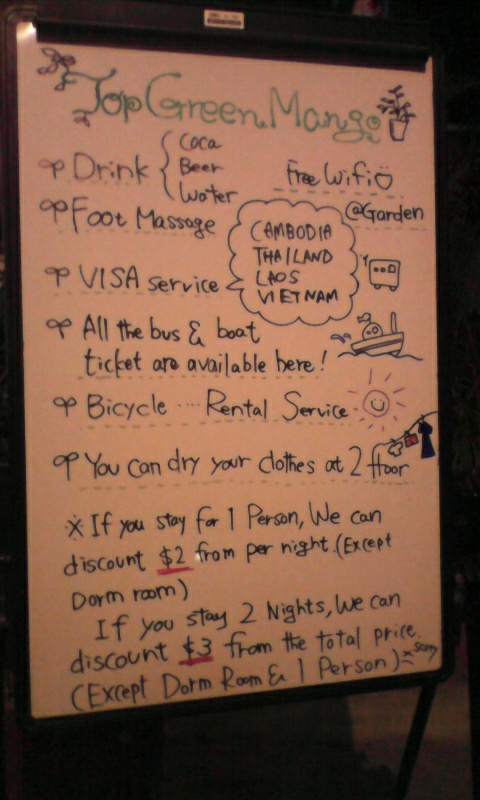 Top Green Mango
Drink { Coca
Beer
Water
Free Wifi
@Garden
Foot Massage
VISA service
CAMBODIA
THAILAND
LAOS
VIETNAM
All the bus & boat
ticket are available here!
Bicycle ... Rental Service
You can dry your clothes at 2 floor
※ If you stay for 1 Person, We can
discount $2 from per night. (Except
Dorm room)
If you stay 2 Nights, We can
discount $3 from the total price.
(Except Dorm Room & 1 Person)